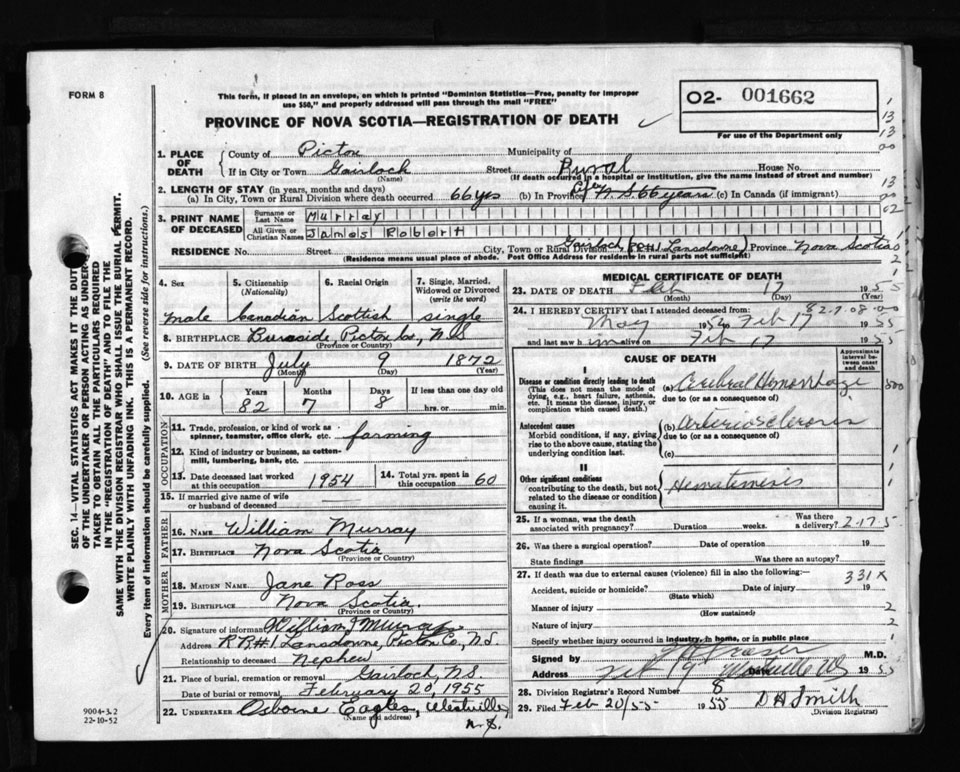 FORM 8
This form, if placed in an envelope, on which is printed "Dominion Statistics—Free, penalty for improper
use $50," and properly addressed will pass through the mail "FREE"
PROVINCE OF NOVA SCOTIA—REGISTRATION OF DEATH
02- 001662
For use of the Department only
1. PLACE OF DEATH
County of Pictou Municipality of
If in City or Town Gairloch Street Rural House No.
(Name) (If death occurred in a hospital or institution, give the name instead of street and number)
2. LENGTH OF STAY (in years, months and days)
(a) In City, Town or Rural Division where death occurred 66 yrs (b) In Province N.S 66 years (c) In Canada (if immigrant)
3. PRINT NAME OF DECEASED
Surname or Last Name Murray
All Given or Christian Names James Robert
RESIDENCE No. Street City, Town or Rural Division Gairloch (RR#1 Lansdowne) Province Nova Scotia
(Residence means usual place of abode. Post Office Address for residents in rural parts not sufficient)
4. Sex
male
5. Citizenship
(Nationality)
Canadian
6. Racial Origin
Scottish
7. Single, Married,
Widowed or Divorced
(write the word)
single
8. BIRTHPLACE Burnside Pictou Co., N.S
(Province or Country)
9. DATE OF BIRTH July 9 1872
(Month) (Day) (Year)
10. AGE in Years Months Days If less than one day old
82 7 8 hrs. or min.
OCCUPATION
11. Trade, profession, or kind of work as
spinner, teamster, office clerk, etc. farming
12. Kind of industry or business, as cotton-
mill, lumbering, bank, etc.
13. Date deceased last worked
at this occupation 1954
14. Total yrs. spent in
this occupation 60
15. If married give name of wife
or husband of deceased
FATHER
16. NAME William Murray
17. BIRTHPLACE Nova Scotia
(Province or Country)
MOTHER
18. MAIDEN NAME Jane Ross
19. BIRTHPLACE Nova Scotia.
(Province or Country)
20. Signature of informant William J Murray
Address RR#1 Lansdowne, Pictou Co., N.S.
Relationship to deceased Nephew
21. Place of burial, cremation or removal Gairloch, N.S.
Date of burial or removal February 20, 1955
22. UNDERTAKER Osborne Eagles, Westville
(Name and address) N.S.
MEDICAL CERTIFICATE OF DEATH
23. DATE OF DEATH Feb 17 1955
(Month) (Day) (Year)
24. I HEREBY CERTIFY that I attended deceased from: 82-7-08-00
May 1954 to Feb 17 1955
and last saw him alive on Feb 17 1955
CAUSE OF DEATH
Approximate
interval be-
tween onset
and death
I
Disease or condition directly leading to death
(This does not mean the mode of
dying, e.g., heart failure, asthenia,
etc. It means the disease, injury, or
complication which caused death.)
(a) Cerebral Hemorrhage
due to (or as a consequence of)
Antecedent causes
Morbid conditions, if any, giving
rise to the above cause, stating the
underlying condition last.
(b) Arteriosclerosis
due to (or as a consequence of)
(c)
II
Other significant conditions
contributing to the death, but not
related to the disease or condition
causing it.
Hematemesis
25. If a woman, was the death
associated with pregnancy? Duration weeks. Was there
a delivery? 2-17-5
26. Was there a surgical operation? Date of operation 19
State findings Was there an autopsy?
27. If death was due to external causes (violence) fill in also the following:—
331X
Accident, suicide or homicide? Date of injury 19
(State which)
Manner of injury
(How sustained)
Nature of injury
Specify whether injury occurred in industry, in home, or in public place
Signed by Fraser M.D.
Address Westville Date Feb 19 1955
28. Division Registrar's Record Number 8
29. Filed Feb 20/55 1955 D H Smith
(Division Registrar)
SEC. 14—VITAL STATISTICS ACT MAKES IT THE DUTY
OF THE UNDERTAKER OR PERSON ACTING AS UNDER-
TAKER TO OBTAIN ALL THE PARTICULARS REQUIRED
IN THE "REGISTRATION OF DEATH" AND TO FILE THE
SAME WITH THE DIVISION REGISTRAR WHO SHALL ISSUE THE BURIAL PERMIT.
WRITE PLAINLY WITH UNFADING INK. THIS IS A PERMANENT RECORD.
Every item of information should be carefully supplied. (See reverse side for instructions.)
9004-3.2
22-10-52